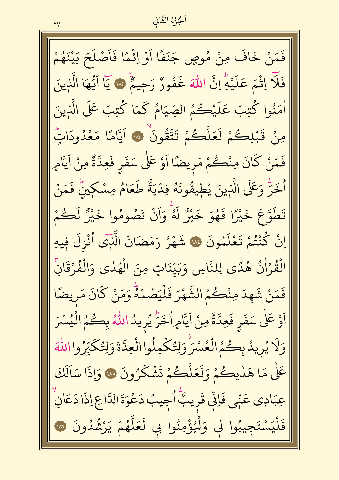 اَلْجُزْءُ الثَّانِي
فَمَنْ خَافَ مِنْ مُوصٍ جَنَفًا اَوْ اِثْمًا فَاَصْلَحَ بَيْنَهُمْ
فَلَٓا اِثْمَ عَلَيْهِۜ اِنَّ اللّٰهَ غَفُورٌ رَحٖيمٌ ۟ يَٓا اَيُّهَا الَّذٖينَ
اٰمَنُوا كُتِبَ عَلَيْكُمُ الصِّيَامُ كَمَا كُتِبَ عَلَى الَّذٖينَ
مِنْ قَبْلِكُمْ لَعَلَّكُمْ تَتَّقُونَۙ اَيَّامًا مَعْدُودَاتٍۜ
فَمَنْ كَانَ مِنْكُمْ مَرٖيضًا اَوْ عَلٰى سَفَرٍ فَعِدَّةٌ مِنْ اَيَّامٍ
اُخَرَۜ وَعَلَى الَّذٖينَ يُطٖيقُونَهُ فِدْيَةٌ طَعَامُ مِسْكٖينٍۜ فَمَنْ
تَطَوَّعَ خَيْرًا فَهُوَ خَيْرٌ لَهُۜ وَاَنْ تَصُومُوا خَيْرٌ لَكُمْ
اِنْ كُنْتُمْ تَعْلَمُونَ شَهْرُ رَمَضَانَ الَّذٖٓي اُنْزِلَ فٖيهِ
الْقُرْاٰنُ هُدًى لِلنَّاسِ وَبَيِّنَاتٍ مِنَ الْهُدٰى وَالْفُرْقَانِۚ
فَمَنْ شَهِدَ مِنْكُمُ الشَّهْرَ فَلْيَصُمْهُۜ وَمَنْ كَانَ مَرٖيضًا
اَوْ عَلٰى سَفَرٍ فَعِدَّةٌ مِنْ اَيَّامٍ اُخَرَۜ يُرٖيدُ اللّٰهُ بِكُمُ الْيُسْرَ
وَلَا يُرٖيدُ بِكُمُ الْعُسْرَۘ وَلِتُكْمِلُوا الْعِدَّةَ وَلِتُكَبِّرُوا اللّٰهَ
عَلٰى مَا هَدٰيكُمْ وَلَعَلَّكُمْ تَشْكُرُونَ وَاِذَا سَاَلَكَ
عِبَادٖي عَنّٖي فَاِنّٖي قَرٖيبٌۜ اُجٖيبُ دَعْوَةَ الدَّاعِ اِذَا دَعَانِۙ
فَلْيَسْتَجٖيبُوا لٖي وَلْيُؤْمِنُوا بٖي لَعَلَّهُمْ يَرْشُدُونَ